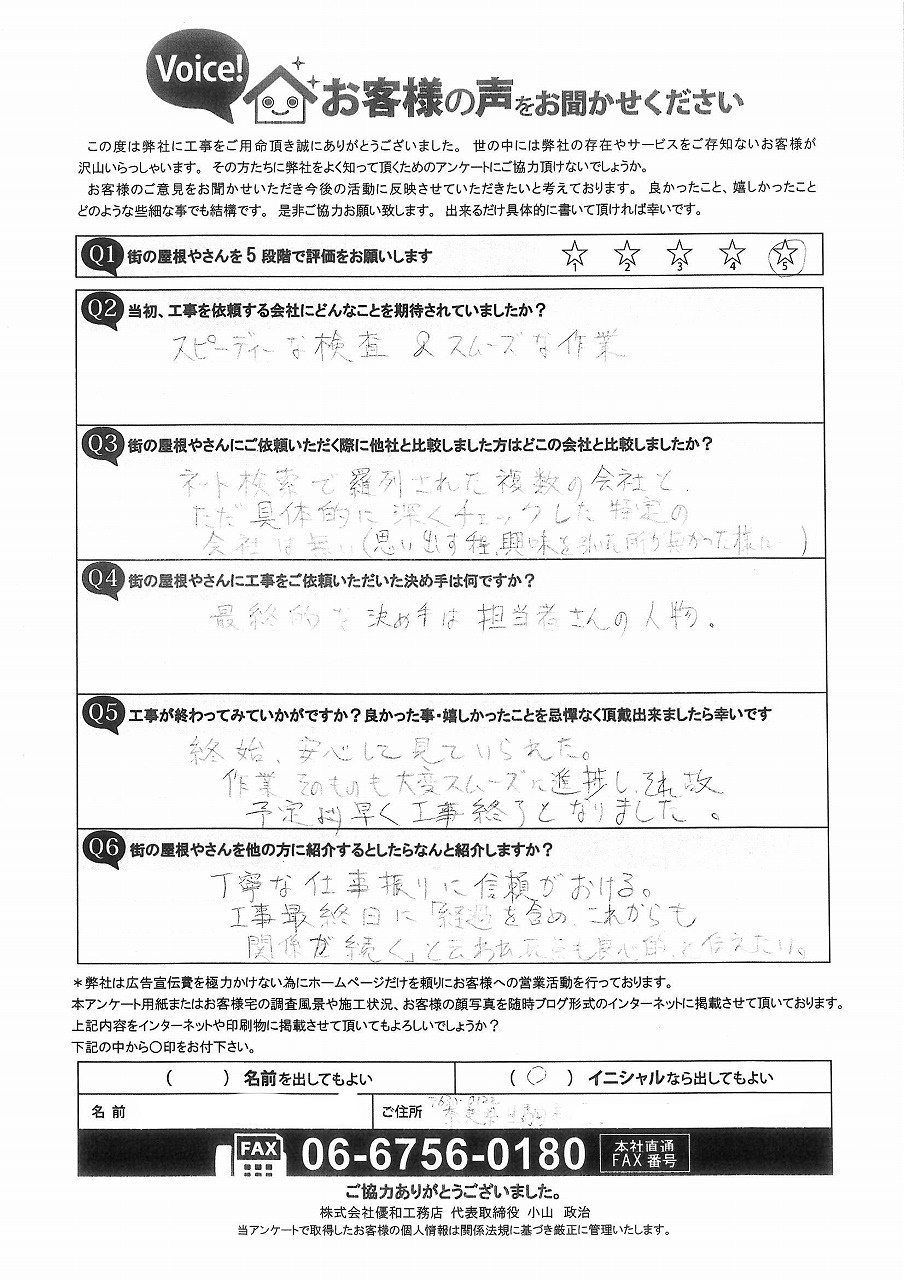 Voice!
お客様の声をお聞かせください
この度は弊社に工事をご用命頂き誠にありがとうございました。 世の中には弊社の存在やサービスをご存知ないお客様が
沢山いらっしゃいます。 その方たちに弊社をよく知って頂くためのアンケートにご協力頂けないでしょうか。
お客様のご意見をお聞かせいただき今後の活動に反映させていただきたいと考えております。 良かったこと、嬉しかったこと
どのような些細な事でも結構です。 是非ご協力お願い致します。 出来るだけ具体的に書いて頂ければ幸いです。
Q1 街の屋根やさんを5段階で評価をお願いします 1 2 3 4 5
Q2 当初、工事を依頼する会社にどんなことを期待されていましたか？
スピーディーな検査 & スムーズな作業
Q3 街の屋根やさんにご依頼いただく際に他社と比較しました方はどこの会社と比較しましたか？
ネット検索で羅列された複数の会社と、
ただ具体的に深くチェックした特定の
会社は無い(思い出す程、興味を引いた所が無かった様に…)
Q4 街の屋根やさんに工事をご依頼いただいた決め手は何ですか？
最終的な決め手は担当者さんの人物。
Q5 工事が終わってみていかがですか？良かった事・嬉しかったことを忌憚なく頂戴出来ましたら幸いです
終始、安心して見ていられた。
作業そのものも大変スムーズに進捗し、それ故
予定より早く工事終了となりました。
Q6 街の屋根やさんを他の方に紹介するとしたらなんと紹介しますか？
丁寧な仕事振りに信頼がおける。
工事最終日に「経過を含め、これからも
関係が続く」と云われた点も良心的、と伝えたい。
＊弊社は広告宣伝費を極力かけない為にホームページだけを頼りにお客様への営業活動を行っております。
本アンケート用紙またはお客様宅の調査風景や施工状況、お客様の顔写真を随時ブログ形式のインターネットに掲載させて頂いております。
上記内容をインターネットや印刷物に掲載させて頂いてもよろしいでしょうか？
下記の中から〇印をお付下さい。
( ) 名前を出してもよい ( ○ ) イニシャルなら出してもよい
名前 ご住所
FAX 06-6756-0180 本社直通
FAX番号
ご協力ありがとうございました。
株式会社優和工務店 代表取締役 小山 政治
当アンケートで取得したお客様の個人情報は関係法規に基づき厳正に管理いたします。